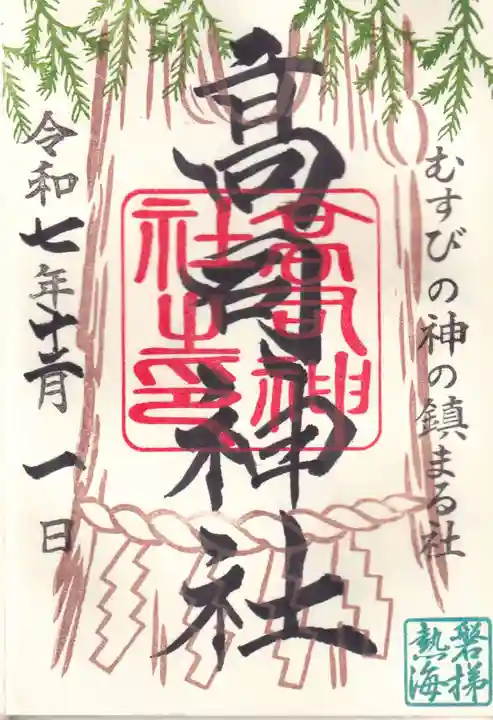 むすびの神の鎮まる社
高司神社
高司神社之印
令和七年十二月一日
磐梯
熱海